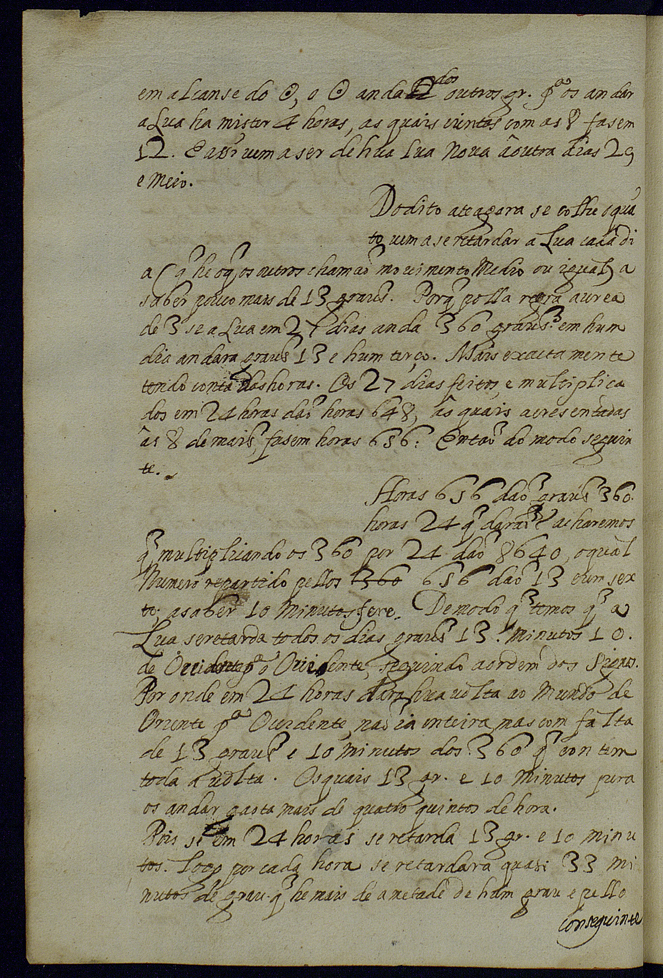 em alcanse do ☉, o ☉ anda dos outros gr. pª os andar
a Lua ha mister 4 horas, as quais iuntas com as 8 fasem
12. E assi vem a ser de hũa Lua nova á outra dias 29
e meio.
Do dito ate agora se colhe o quã
to vem a se retardar a Lua cada di
a ( q̃ he o q̃ os outros chamaõ movimento Medio ou igual) a
saber pouco mais de 13 graus. Porq̃ polla regra aurea
de 3 se a Lua em 27 dias anda 360 graus: em hum
dia andara graus 13 e hum terço. Mais exactamente
tendo conta das horas. Os 27 dias feitos, e multiplica
dos em 24 horas daõ horas 648, âs quais acresentadas
âs 8 de mais fasem horas 656: Entaõ do modo seguin
te.
Horas 656 daõ graus 360.
horas 24 q̃ acharemos
q̃ multiplicando os 360 por 24 daõ 8640, o qual
Numero repartido pellos 360 656 daõ 13 e um sex
to: a saber 10 Minutos fere. De modo q̃ temos q̃ a
Lua se retarda todos os dias graus 13. Minutos 10.
de Occidente pª o Oriente, seguindo a ordem dos Signos.
Por onde em 24 horas dara hũa volta ao Mundo de
Oriente pª Occidente, naõ ia inteira, mas com falta
de 13 graus e 10 minutos dos 360 q̃ contem
toda a volta. Os quais 13 gr. e 10 Minutos pera
os andar gasta mais de quatro quintos de hora.
Pois se em 24 horas se retarda 13 gr. e 10 minu
tos. Logo por cada hora se retardara quasi 33 mi
nutos de grau. q̃ he mais de ametade de hum grau e pello
conseguinte